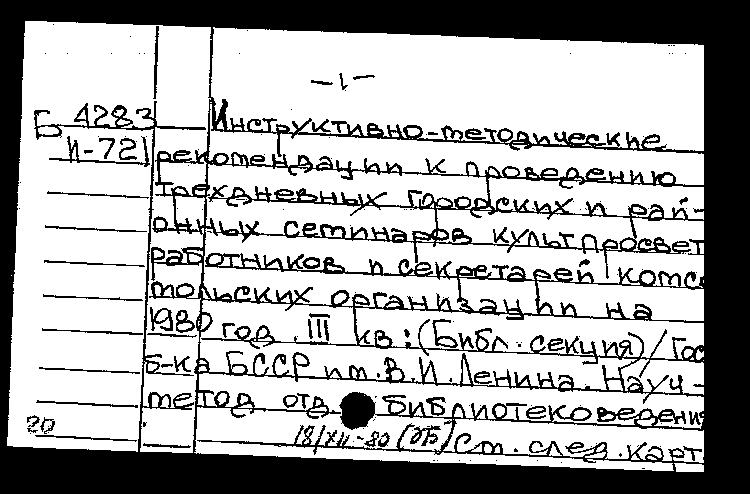 -1-
Б 4283 Инструктивно-методические
И-721 рекомендации к проведению
трехдневных городских и рай-
онных семинаров культпросвет
работников и секретарей комсо
мольских организации на
1980 год. III кв: (Библ. секция)/Гос
б-ка БССР им. В.И. Ленина. Науч-
метод отд библиотековедения
20 18/XII-80 (ОБ) См. след. карт.